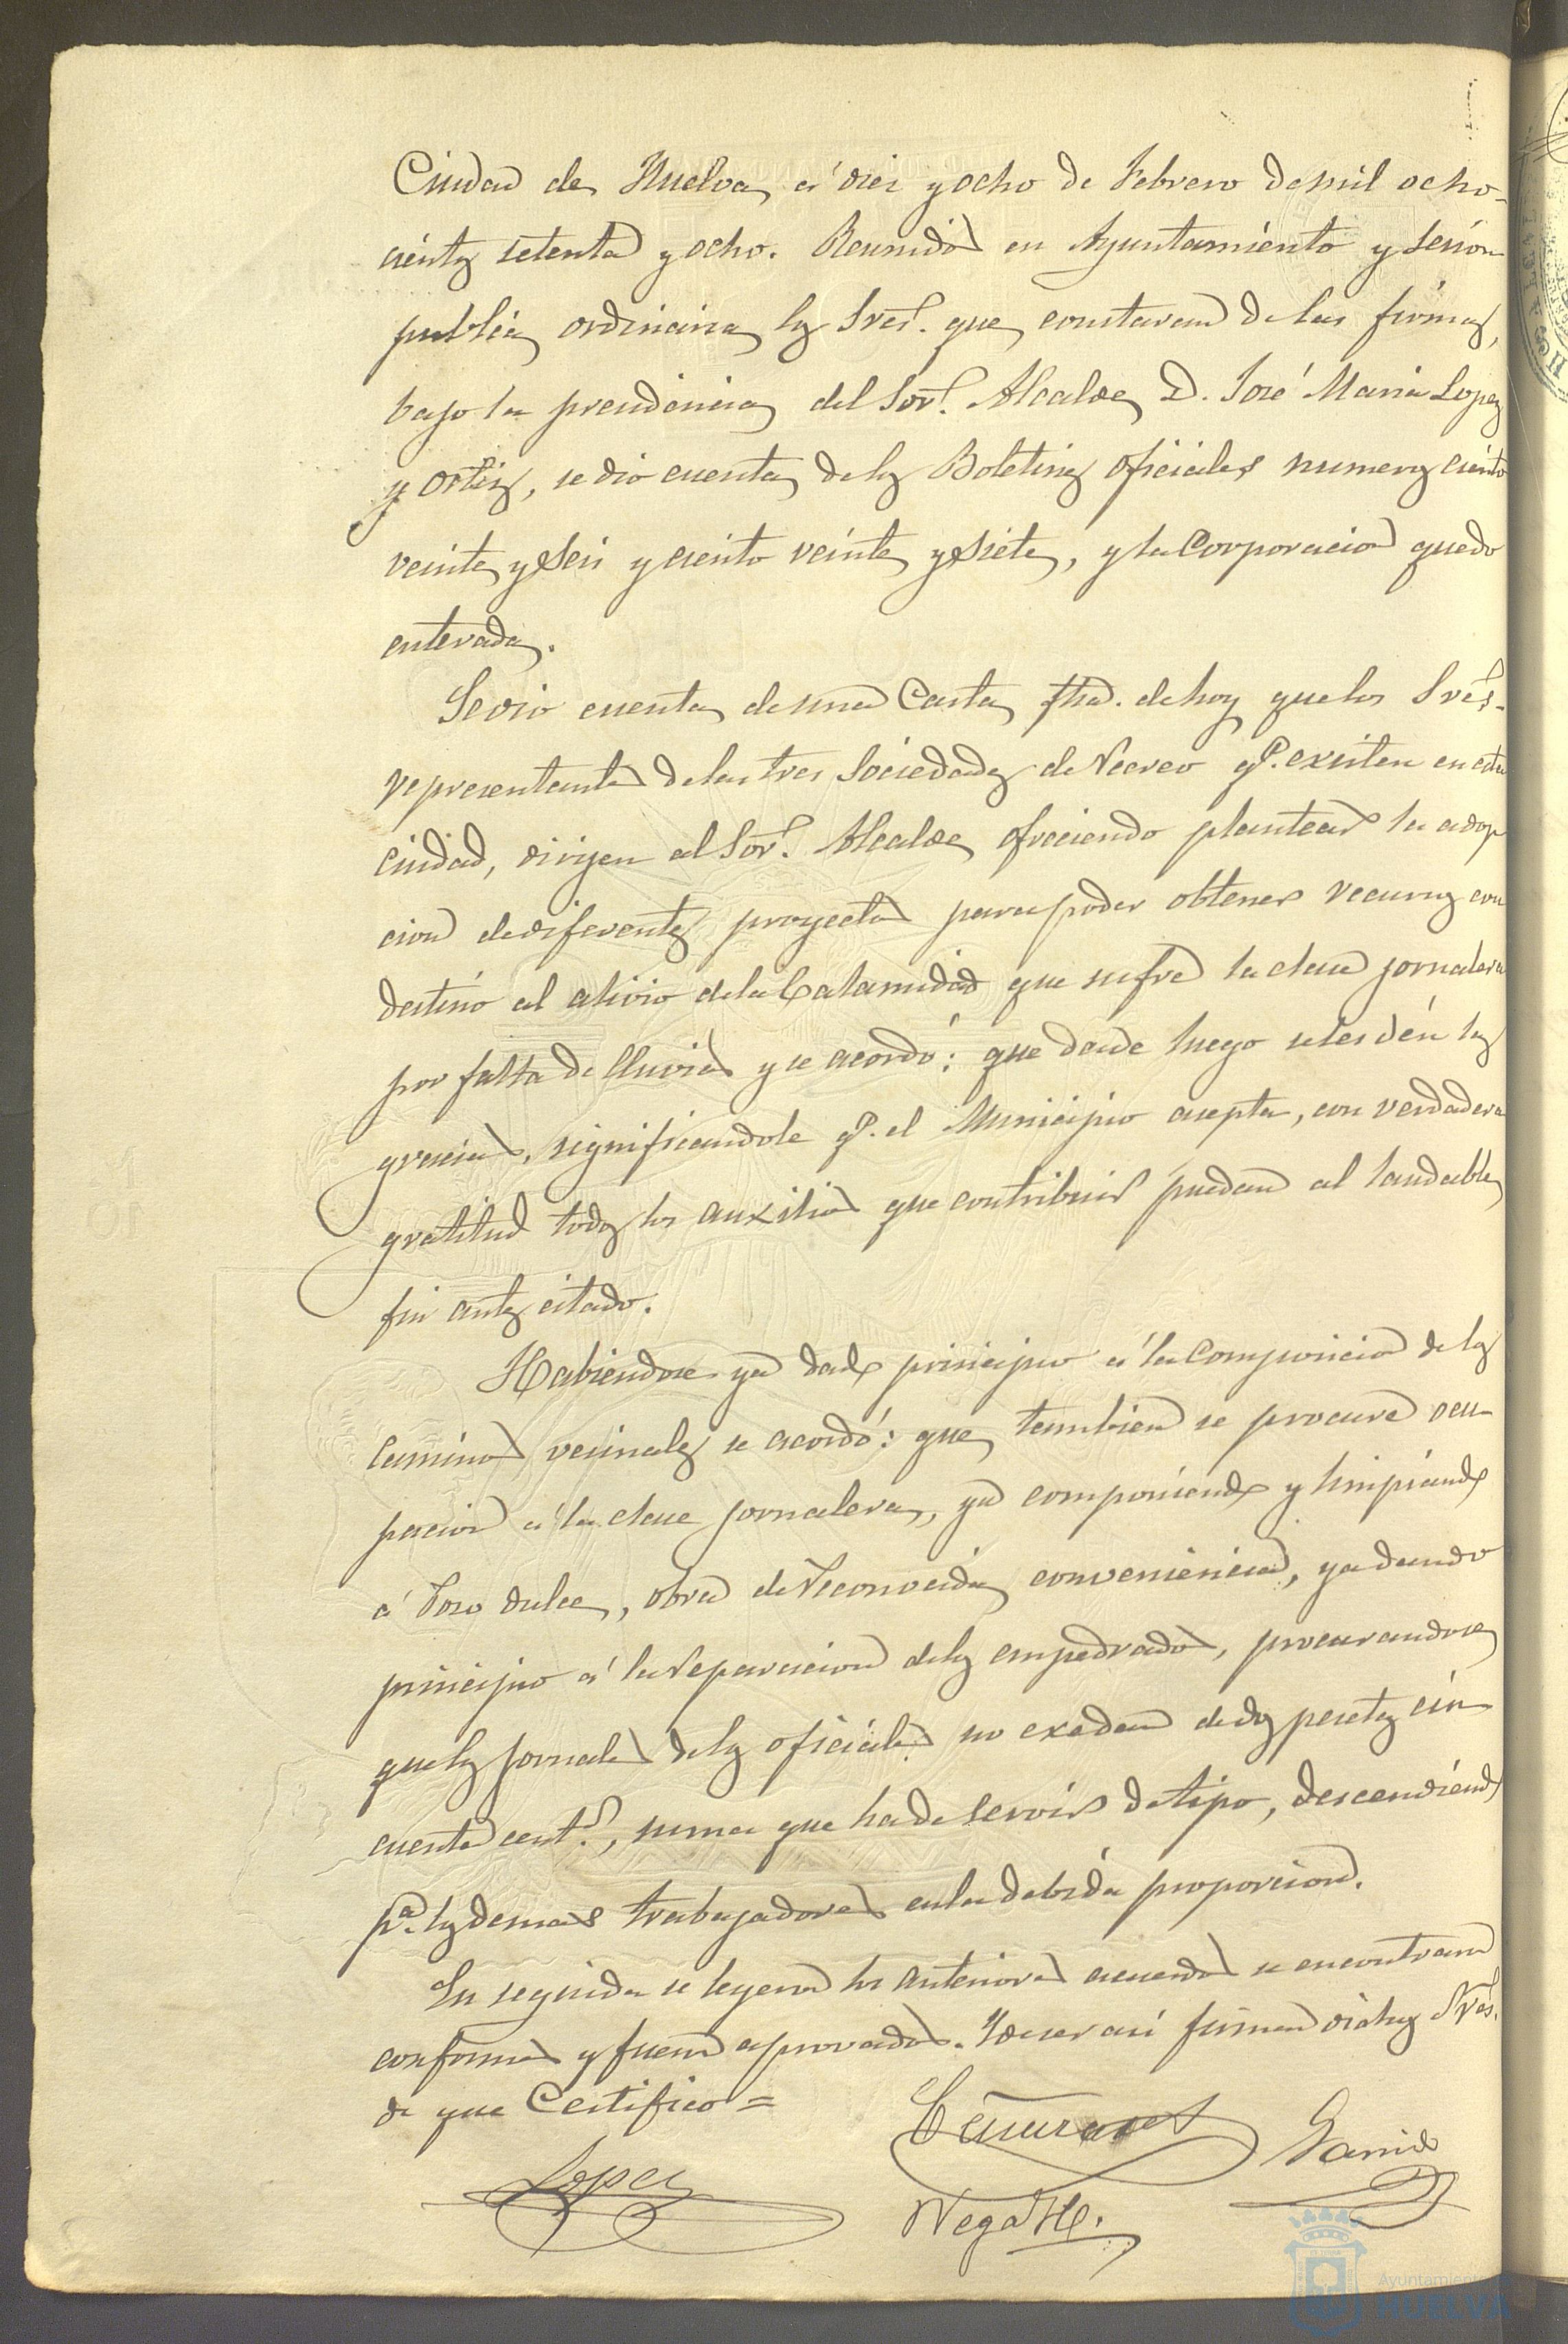 Ciudad de Huelva á diez y ocho de Febrero de mil ocho-
cientos setenta y ocho. Reunidos en Ayuntamiento y sesion
publica ordinaria los Sres. que constaran de las firmas,
bajo la presidencia del Sor. Alcalde D. José Maria Lopez
y Ortiz, se dió cuenta de los Boletines oficiales numeros ciento
veinte y seis y ciento veinte y siete, y la Corporacion quedo
enterada.
Se dió cuenta de una Carta fha. de hoy que los Sres.
representantes de las tres Sociedades de Recreo qe. existen en esta
ciudad, dirijen al Sor. Alcalde ofreciendo plantear la adop
cion de diferentes proyectos para poder obtener recursos con
destino al alivio de la Calamidad que sufre la clase jornalera
por falta de lluvias y se acordó: que desde luego se les dén las
gracias, significandole qe. el Municipio acepta, con verdadera
gratitud todos los auxilios que contribuir puedan al laudable
fin antes citado.
Habiendose ya dado principio á la Composicion de los
Caminos vecinales se acordó: que tambien se procure ocu-
pacion á la clase jornalera, ya componiendo y limpiando
á Pozo dulce, obra de reconocida conveniencia, ya dando
principio á la reparacion de los empedrados, procurandose
que los jornales de los oficiales no exedan de dos pesetas cin
cuenta cents., suma que ha de servir de tipo, descendiendo
pa. los demas trabajadores en la debida proporcion.
En seguida se leyeron los anteriores acuerdos se encontraron
conformes y fueron aprovados. Y de ser así firman dichos Sres.
de que Certifico =
Lopez
Garrido
Vega H.
Ayuntamiento
HUELVA